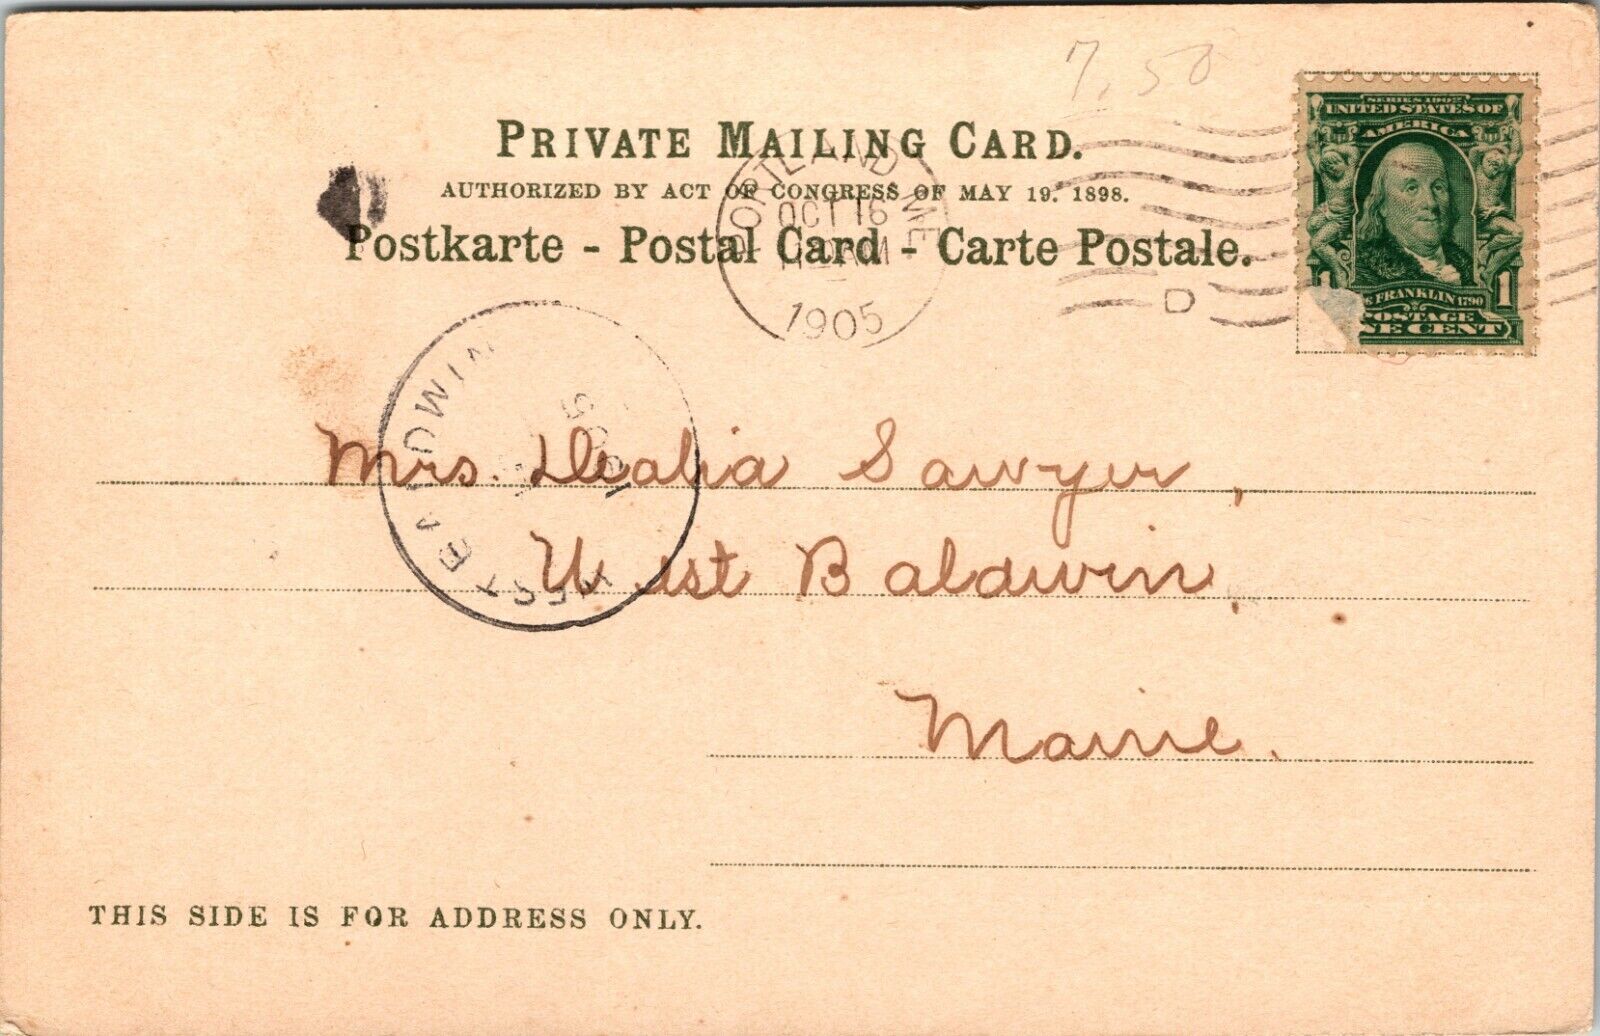 7.50
PRIVATE MAILING CARD.
AUTHORIZED BY ACT OF CONGRESS OF MAY 19. 1898.
Postkarte - Postal Card - Carte Postale.
PORTLAND ME
OCT 16
AM
1905
D
SERIES 1902
UNITED STATES OF
AMERICA
1 FRANKLIN 1790 1
POSTAGE
NE CENT
WEST BALDWIN
1905
Mrs. Dealia Sawyer,
West Baldwin,
Maine.
THIS SIDE IS FOR ADDRESS ONLY.